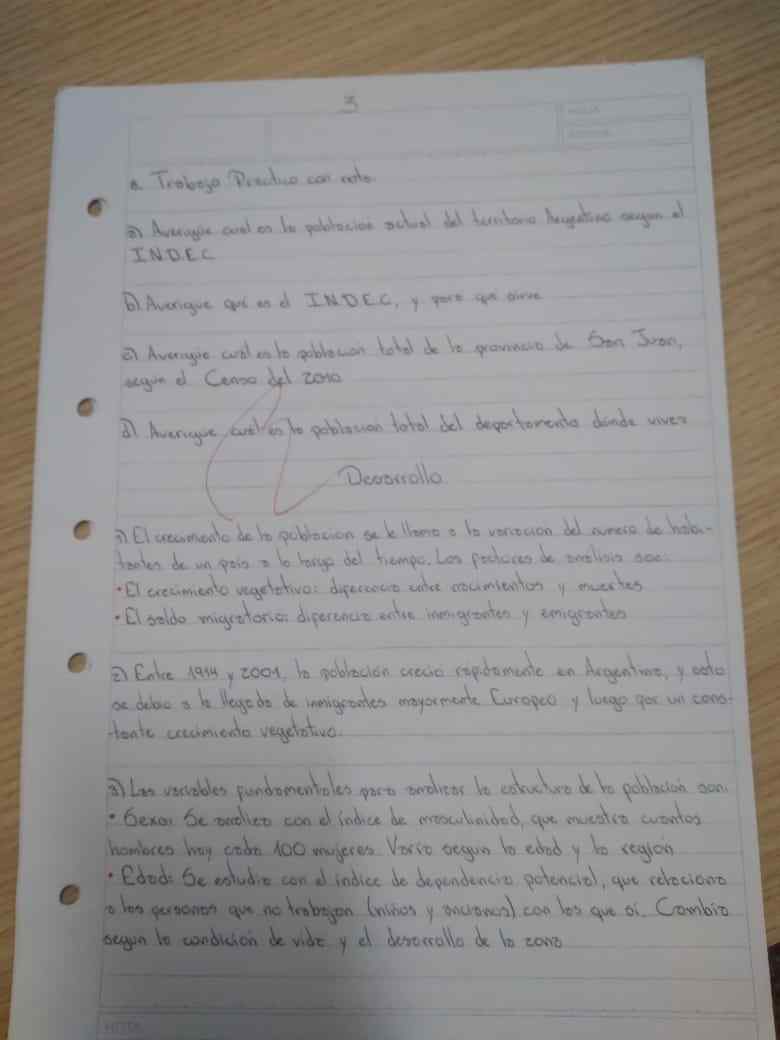 3
8. Trabajo Practico con nota.
a) Averigüe cual es la poblacion actual del territorio Argentino segun el
I.N.D.E.C
b) Averigue qué es el I.N.D.E.C, y para que sirve
c) Averigüe cual es la poblacion total de la provincia de San Juan,
segun el Censo del 2010
d) Averigüe cual es la poblacion total del departamento donde vives
Desarrollo
1) El crecimiento de la poblacion se le llama a la variacion del numero de habi-
tantes de un pais a lo largo del tiempo. Los factores de analisis son:
• El crecimiento vegetativo: diferencia entre nacimientos y muertes
• El saldo migratorio: diferencia entre inmigrantes y emigrantes
2) Entre 1914 y 2001, la población crecio rapidamente en Argentina, y esto
se debio a la llegada de inmigrantes mayormente Europeo y luego por un cons-
tante crecimiento vegetativo.
3) Las variables fundamentales para analizar la estructura de la población son:
• Sexo: Se analiza con el índice de masculinidad, que muestra cuantos
hombres hay cada 100 mujeres. Varia segun la edad y la región
• Edad: Se estudia con el indice de dependencia potencial, que relaciona
a las personas que no trabajan (niños y ancianos) con los que sí. Cambia
segun la condición de vida y el desarrollo de la zona